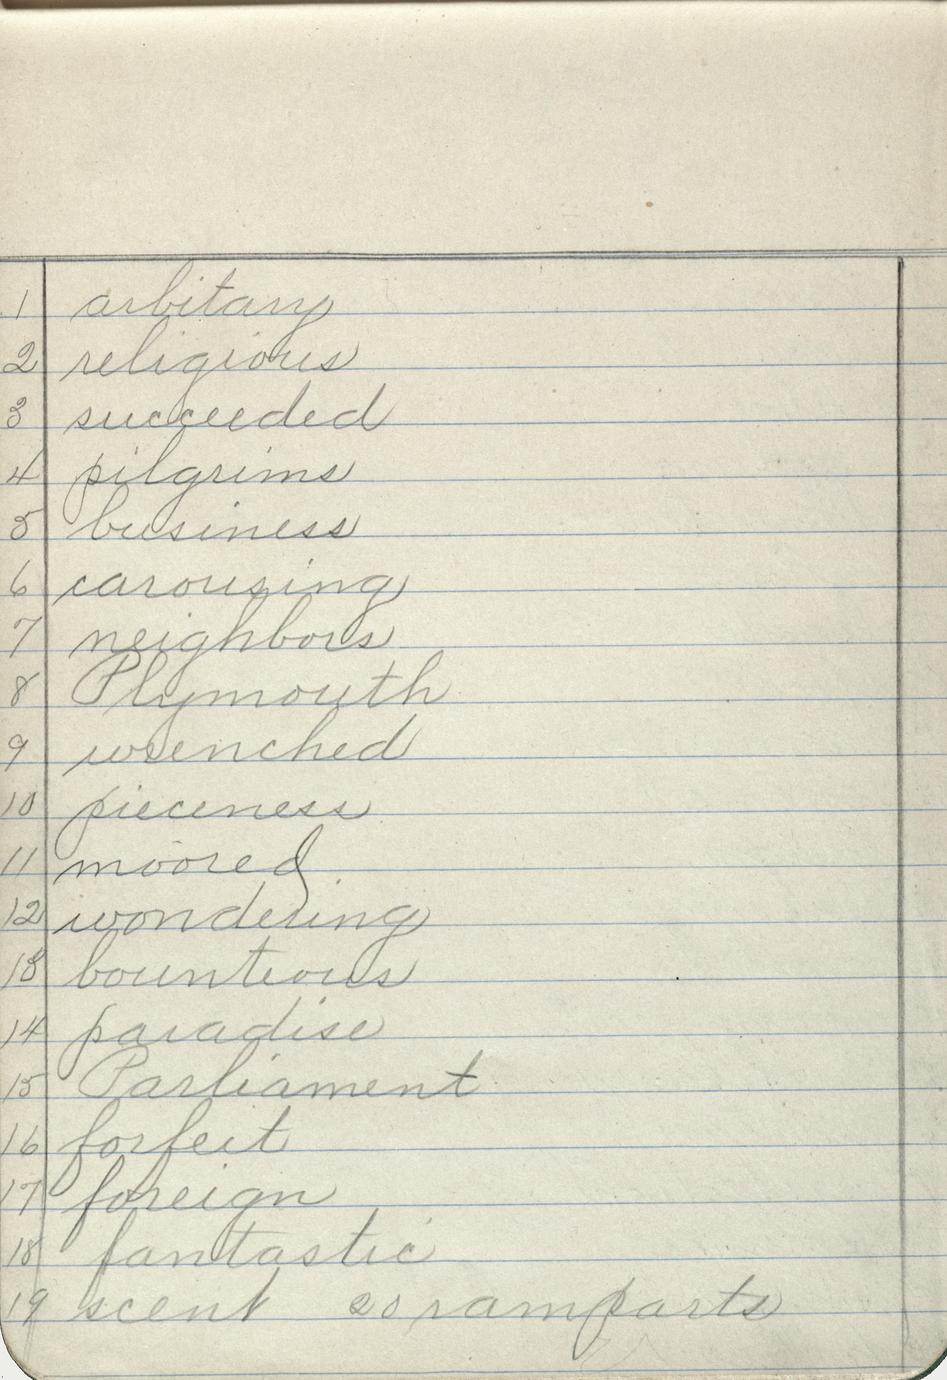 1 arbitary
2 religious
3 succeeded
4 pilgrims
5 business
6 carousing
7 neighbors
8 Plymouth
9 wrenched
10 pieceness
11 moored
12 wondering
13 bounteous
14 paradise
15 Parliament
16 forfeit
17 foreign
18 fantastic
19 scent 20 ramparts